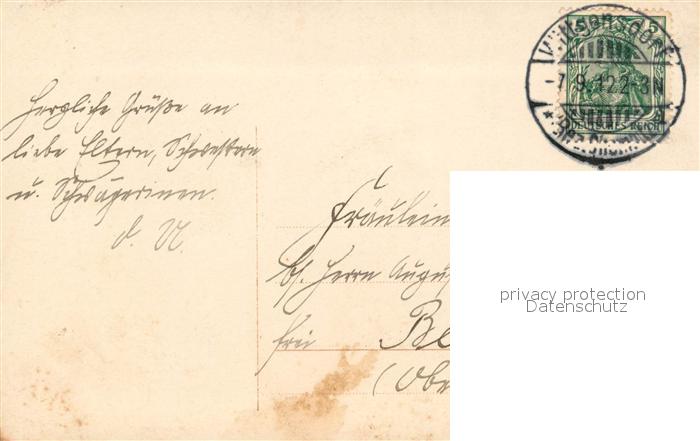 Herzliche Grüße an
liebe Eltern, Schwestern
u. Schwägerinnen.
d. U.
Fräulein
bs. Herrn Augus
frei Be
(Obe
Wittgensdorf
-7.9.12.2-3N
DEUTSCHES REICH
5
privacy protection
Datenschutz